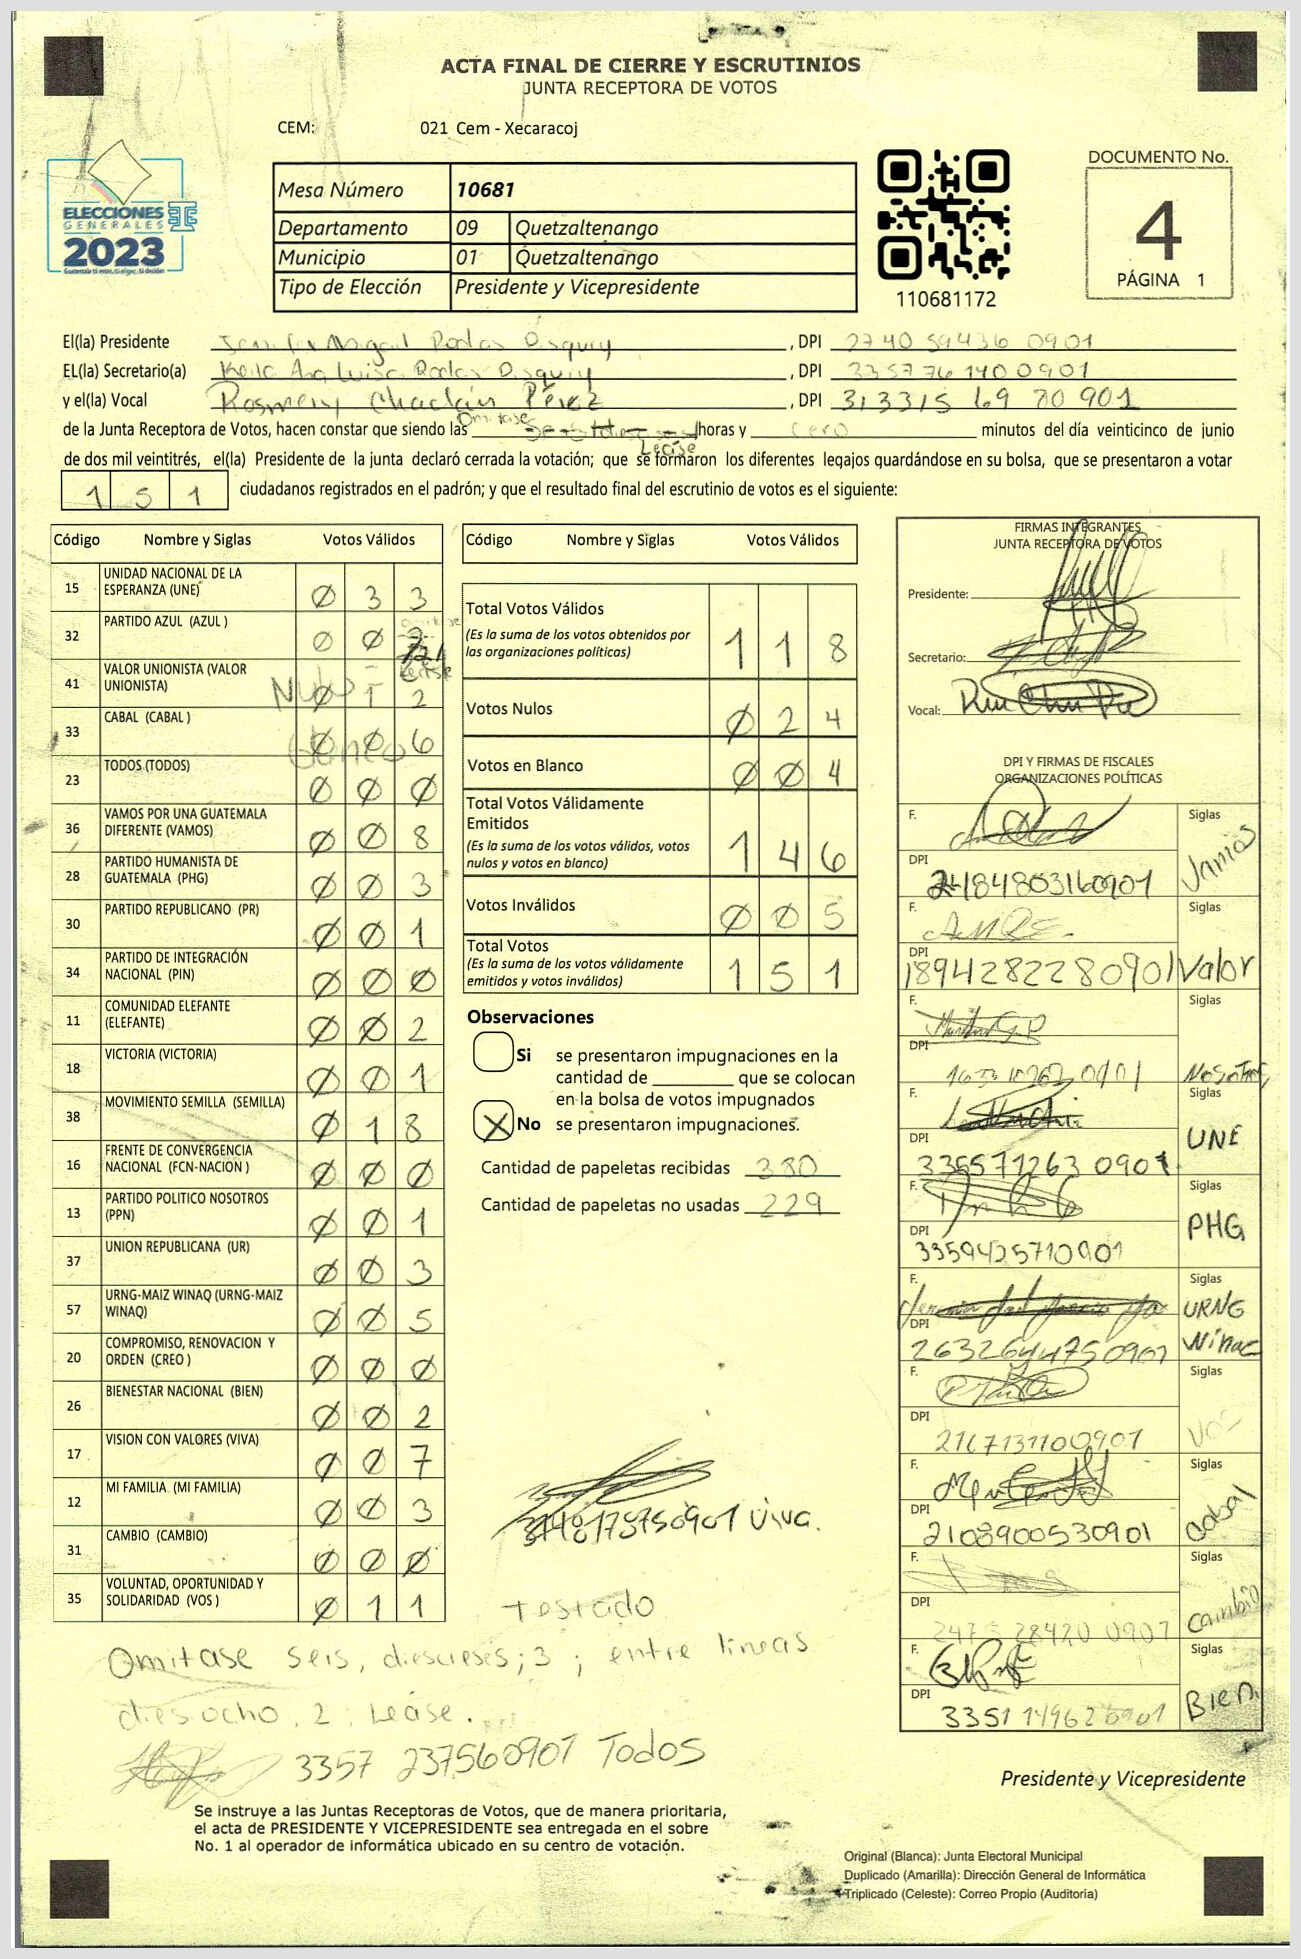 ACTA FINAL DE CIERRE Y ESCRUTINIOS
JUNTA RECEPTORA DE VOTOS
CEM: 021 Cem - Xecaracoj
ELECCIONES
GENERALES
2023
Mesa Número 10681
Departamento 09 Quetzaltenango
Municipio 01 Quetzaltenango
Tipo de Elección Presidente y Vicepresidente
110681172
DOCUMENTO No.
4
PÁGINA 1
El(la) Presidente Abigail Rodas , DPI 2740 59436 0901
EL(la) Secretario(a) Ana Luisa Rodas , DPI 335776140 0901
y el(la) Vocal Rosmery Chaclán Pérez , DPI 313315 69 80901
Omitase
de la Junta Receptora de Votos, hacen constar que siendo las horas y cero minutos del día veinticinco de junio
Lease
de dos mil veintitrés, el(la) Presidente de la junta declaró cerrada la votación; que se formaron los diferentes legajos guardándose en su bolsa, que se presentaron a votar
151 ciudadanos registrados en el padrón; y que el resultado final del escrutinio de votos es el siguiente:
Código Nombre y Siglas Votos Válidos
15 UNIDAD NACIONAL DE LA ESPERANZA (UNE) 0 3 3
32 PARTIDO AZUL (AZUL ) 0 0
41 VALOR UNIONISTA (VALOR UNIONISTA) 0 1 2
33 CABAL (CABAL ) 0 0 6
23 TODOS (TODOS) 0 0 0
36 VAMOS POR UNA GUATEMALA DIFERENTE (VAMOS) 0 0 8
28 PARTIDO HUMANISTA DE GUATEMALA (PHG) 0 0 3
30 PARTIDO REPUBLICANO (PR) 0 0 1
34 PARTIDO DE INTEGRACIÓN NACIONAL (PIN) 0 0 0
11 COMUNIDAD ELEFANTE (ELEFANTE) 0 0 2
18 VICTORIA (VICTORIA) 0 0 1
38 MOVIMIENTO SEMILLA (SEMILLA) 0 1 8
16 FRENTE DE CONVERGENCIA NACIONAL (FCN-NACION ) 0 0 0
13 PARTIDO POLITICO NOSOTROS (PPN) 0 0 1
37 UNION REPUBLICANA (UR) 0 0 3
57 URNG-MAIZ WINAQ (URNG-MAIZ WINAQ) 0 0 5
20 COMPROMISO, RENOVACION Y ORDEN (CREO ) 0 0 0
26 BIENESTAR NACIONAL (BIEN) 0 0 2
17 VISION CON VALORES (VIVA) 0 0 7
12 MI FAMILIA (MI FAMILIA) 0 0 3
31 CAMBIO (CAMBIO) 0 0 0
35 VOLUNTAD, OPORTUNIDAD Y SOLIDARIDAD (VOS ) 0 1 1
Código Nombre y Siglas Votos Válidos
Total Votos Válidos 1 1 8
(Es la suma de los votos obtenidos por las organizaciones políticas)
Votos Nulos 0 2 4
Votos en Blanco 0 0 4
Total Votos Válidamente Emitidos 1 4 6
(Es la suma de los votos válidos, votos nulos y votos en blanco)
Votos Inválidos 0 0 5
Total Votos 1 5 1
(Es la suma de los votos válidamente emitidos y votos inválidos)
Observaciones
Si se presentaron impugnaciones en la
cantidad de ________ que se colocan
en la bolsa de votos impugnados
X No se presentaron impugnaciones.
Cantidad de papeletas recibidas 380
Cantidad de papeletas no usadas 229
viva.
Testado
Omitase seis, diescieses; 3 ; entre lineas
diesocho. 2. Lease.
3357 237560901 Todos
FIRMAS INTEGRANTES
JUNTA RECEPTORA DE VOTOS
Presidente:
Secretario:
Vocal:
DPI Y FIRMAS DE FISCALES
ORGANIZACIONES POLÍTICAS
F. Siglas
DPI 24184803160901
F. Siglas
DPI 1894282280901 Valor
F. Siglas
DPI Nosotros
F. Siglas
DPI 335571263 0901 UNE
F. Siglas
DPI 3359425710901 PHG
F. Siglas
DPI 2632644750901 URNG Winac
F. Siglas
DPI 2167131100901 VOS
F. Siglas
DPI 2108900530901 Cabal
F. Siglas
DPI 28420 0901 Cambio
F. Siglas
DPI 3351 14962 0901 Bien
Presidente y Vicepresidente
Se instruye a las Juntas Receptoras de Votos, que de manera prioritaria,
el acta de PRESIDENTE Y VICEPRESIDENTE sea entregada en el sobre
No. 1 al operador de informática ubicado en su centro de votación.
Original (Blanca): Junta Electoral Municipal
Duplicado (Amarilla): Dirección General de Informática
Triplicado (Celeste): Correo Propio (Auditoría)